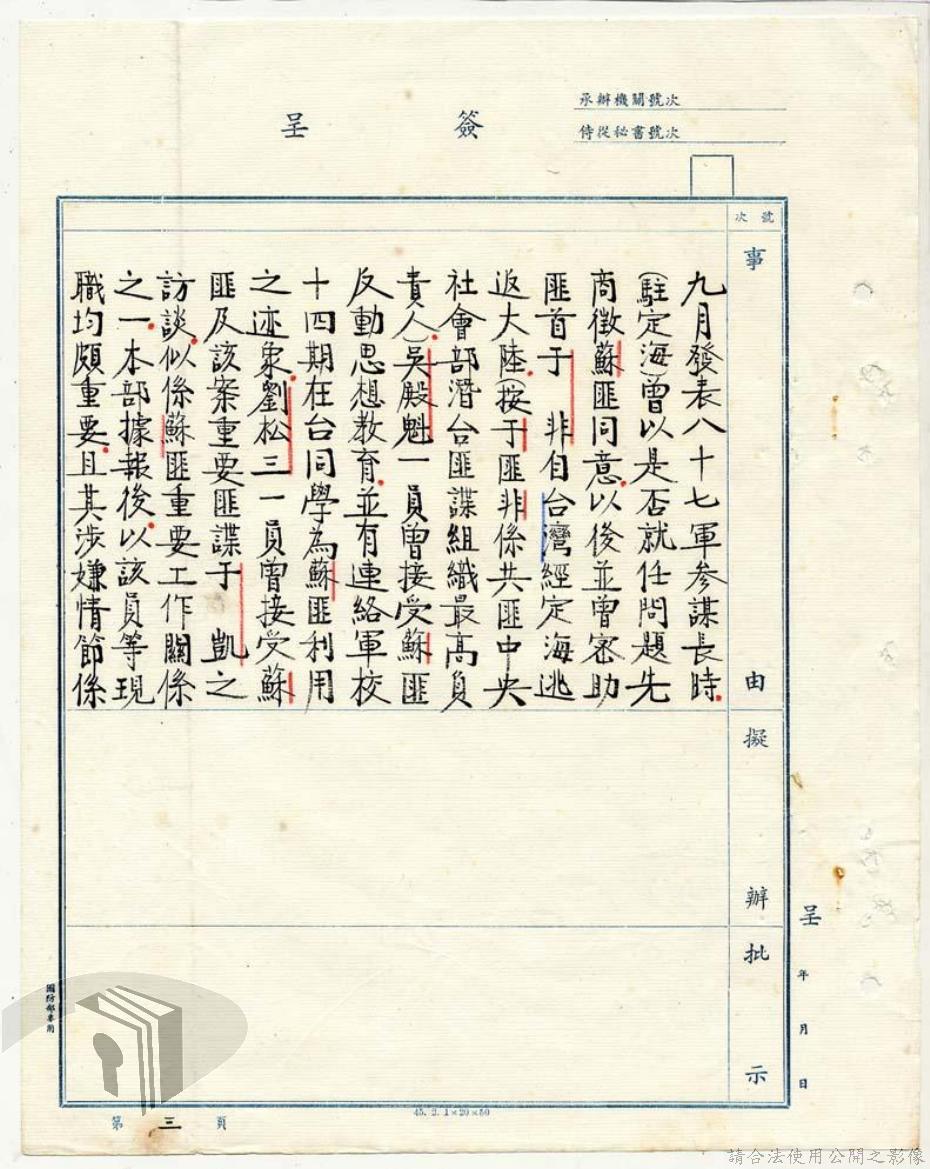 承辦機關號次
侍從秘書號次
簽呈
號次
事由
九月發表八十七軍參謀長時.
(駐定海)曾以是否就任問題先
商徵蘇匪同意.以後並曾密助
匪首于 非自台灣經定海逃
返大陸.(按于匪非係共匪中央
社會部潛台匪諜組織最高負
責人).吳殿魁一員曾接受蘇匪
反動思想教育.並有連絡軍校
十四期在台同學為蘇匪利用
之迹象.劉松三一員曾接受蘇
匪及該案重要匪諜于 凱之
訪談.似係蘇匪重要工作關係
之一.本部據報後.以該員等現
職均頗重要.且其涉嫌情節係
擬辦
批示
呈 年 月 日
國防部專用
第三頁
45. 2. 1×20×50
請合法使用公開之影像